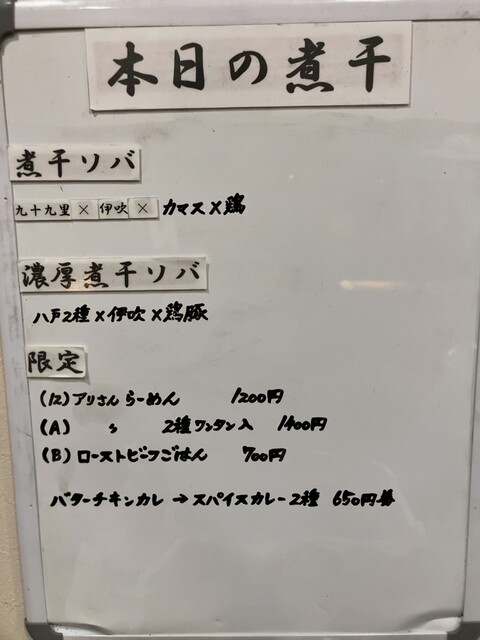 本日の煮干
煮干ソバ
九十九里 × 伊吹 × カマス × 鶏
濃厚煮干ソバ
八戸2種 × 伊吹 × 鶏豚
限定
(12) アリさん らーめん 1200円
(A) 〃 2種ワンタン入 1400円
(B) ローストビーフごはん 700円
バターチキンカレ → スパイスカレー2種 650円